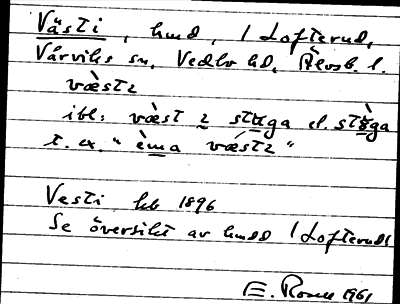 Västi, hmd, i Lofterud,
Vårviks sn, Vedbo hd, Älvsb. l.
væ̀st
ibl: væst stuga el. stuga
t. ex. "èma væst"
Vesti, hb 1896
Se översikt av hmdd i Lofterud
E. Rosen 1961